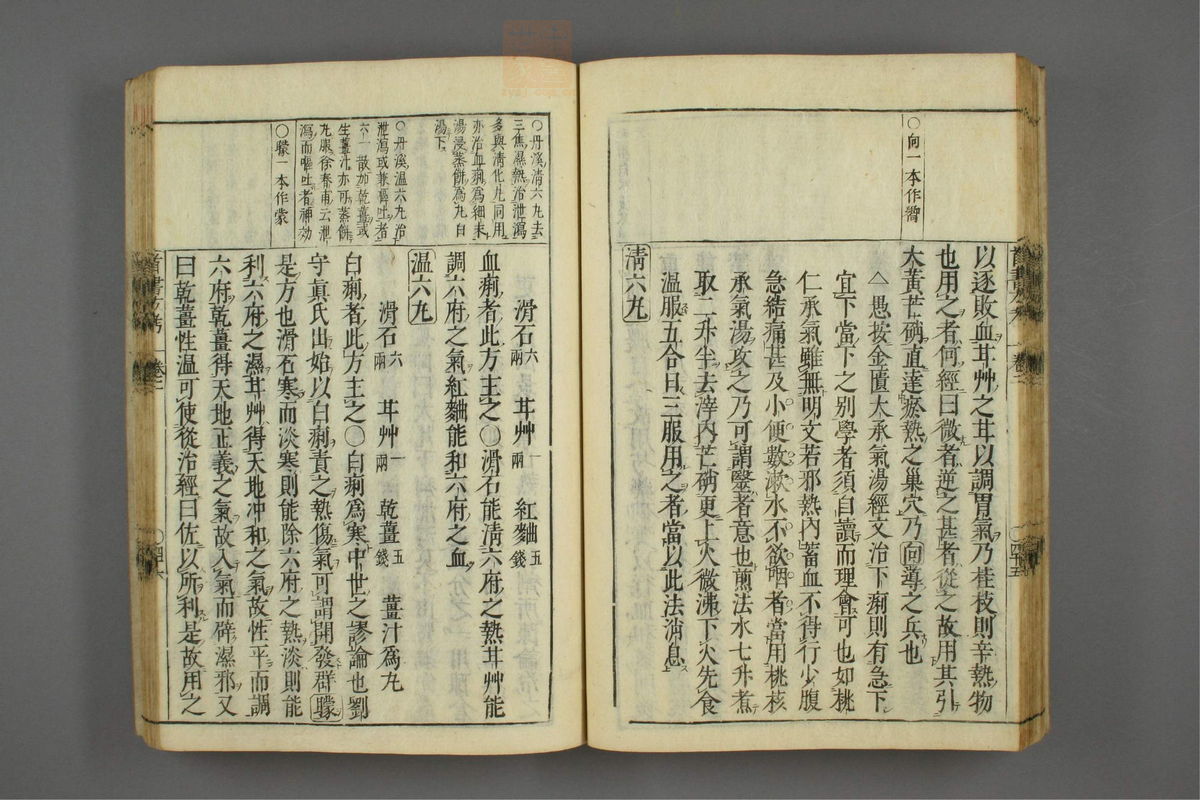 〇向一本作嚮
以逐敗血耳艸之耳以調胃氣乃桂枝則辛熱物
也用之者何經曰微者逆之甚者從之故用其引
大黃芒硝直達瘀熱之巢穴乃向導之兵也
△愚按金匱大承氣湯經文治下痢則有急下
宜下當下之别學者須自讀而理會可也如桃
仁承氣雖無明文若邪熱內蓄血不得行少腹
急結痛甚及小便數漱水不欲咽者當用桃核
承氣湯攻之乃可謂毉者意也煎法水七升煮
取二升半去滓內芒硝更上火微沸下火先食
溫服五合日三服用之者當以此法消息
淸六丸
〇丹溪淸六丸去
三焦濕熱治泄瀉
多與淸化丸同用
亦治血痢爲細末
湯浸蒸餅爲丸白
湯下
〇丹溪温六丸治
泄瀉或兼嘔吐者
六一散加乾薑或
生薑汁亦可蒸餅
丸服徐春甫云泄
瀉而嘔吐者神効
〇矇一本作蒙
滑石六兩 耳艸一兩 紅麯五錢
血痢者此方主之〇滑石能淸六府之熱耳艸能
調六府之氣紅麯能和六府之血
温六丸
滑石六兩 耳艸一兩 乾薑五錢 薑汁爲丸
白痢者此方主之〇白痢爲寒中世之謬論也劉
守眞氏出始以白痢責之熱傷氣可謂開發群矇
是方也滑石寒而淡寒則能除六府之熱淡則能
利六府之濕耳艸得天地冲和之氣故性平而調
六府乾薑得天地正義之氣故入氣而辟濕邪又
曰乾薑性温可使從治經曰佐以所利是故用之